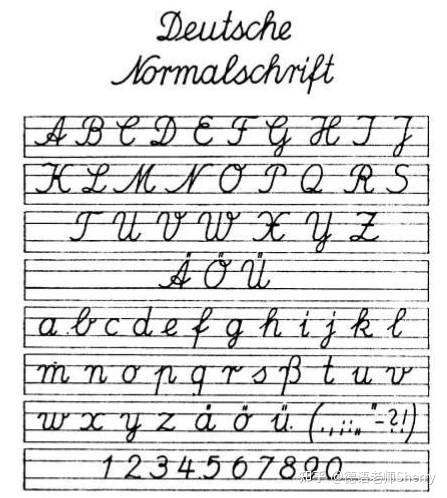 Deutsche
Normalschrift
A B C D E F G H I J
K L M N O P Q R S
T U V W X Y Z
Ä Ö Ü
a b c d e f g h i j k l
m n o p q r s ß t u v
w x y z ä ö ü (.,;:„"-?!)
1 2 3 4 5 6 7 8 9 0
知乎 @德语老师Sherry